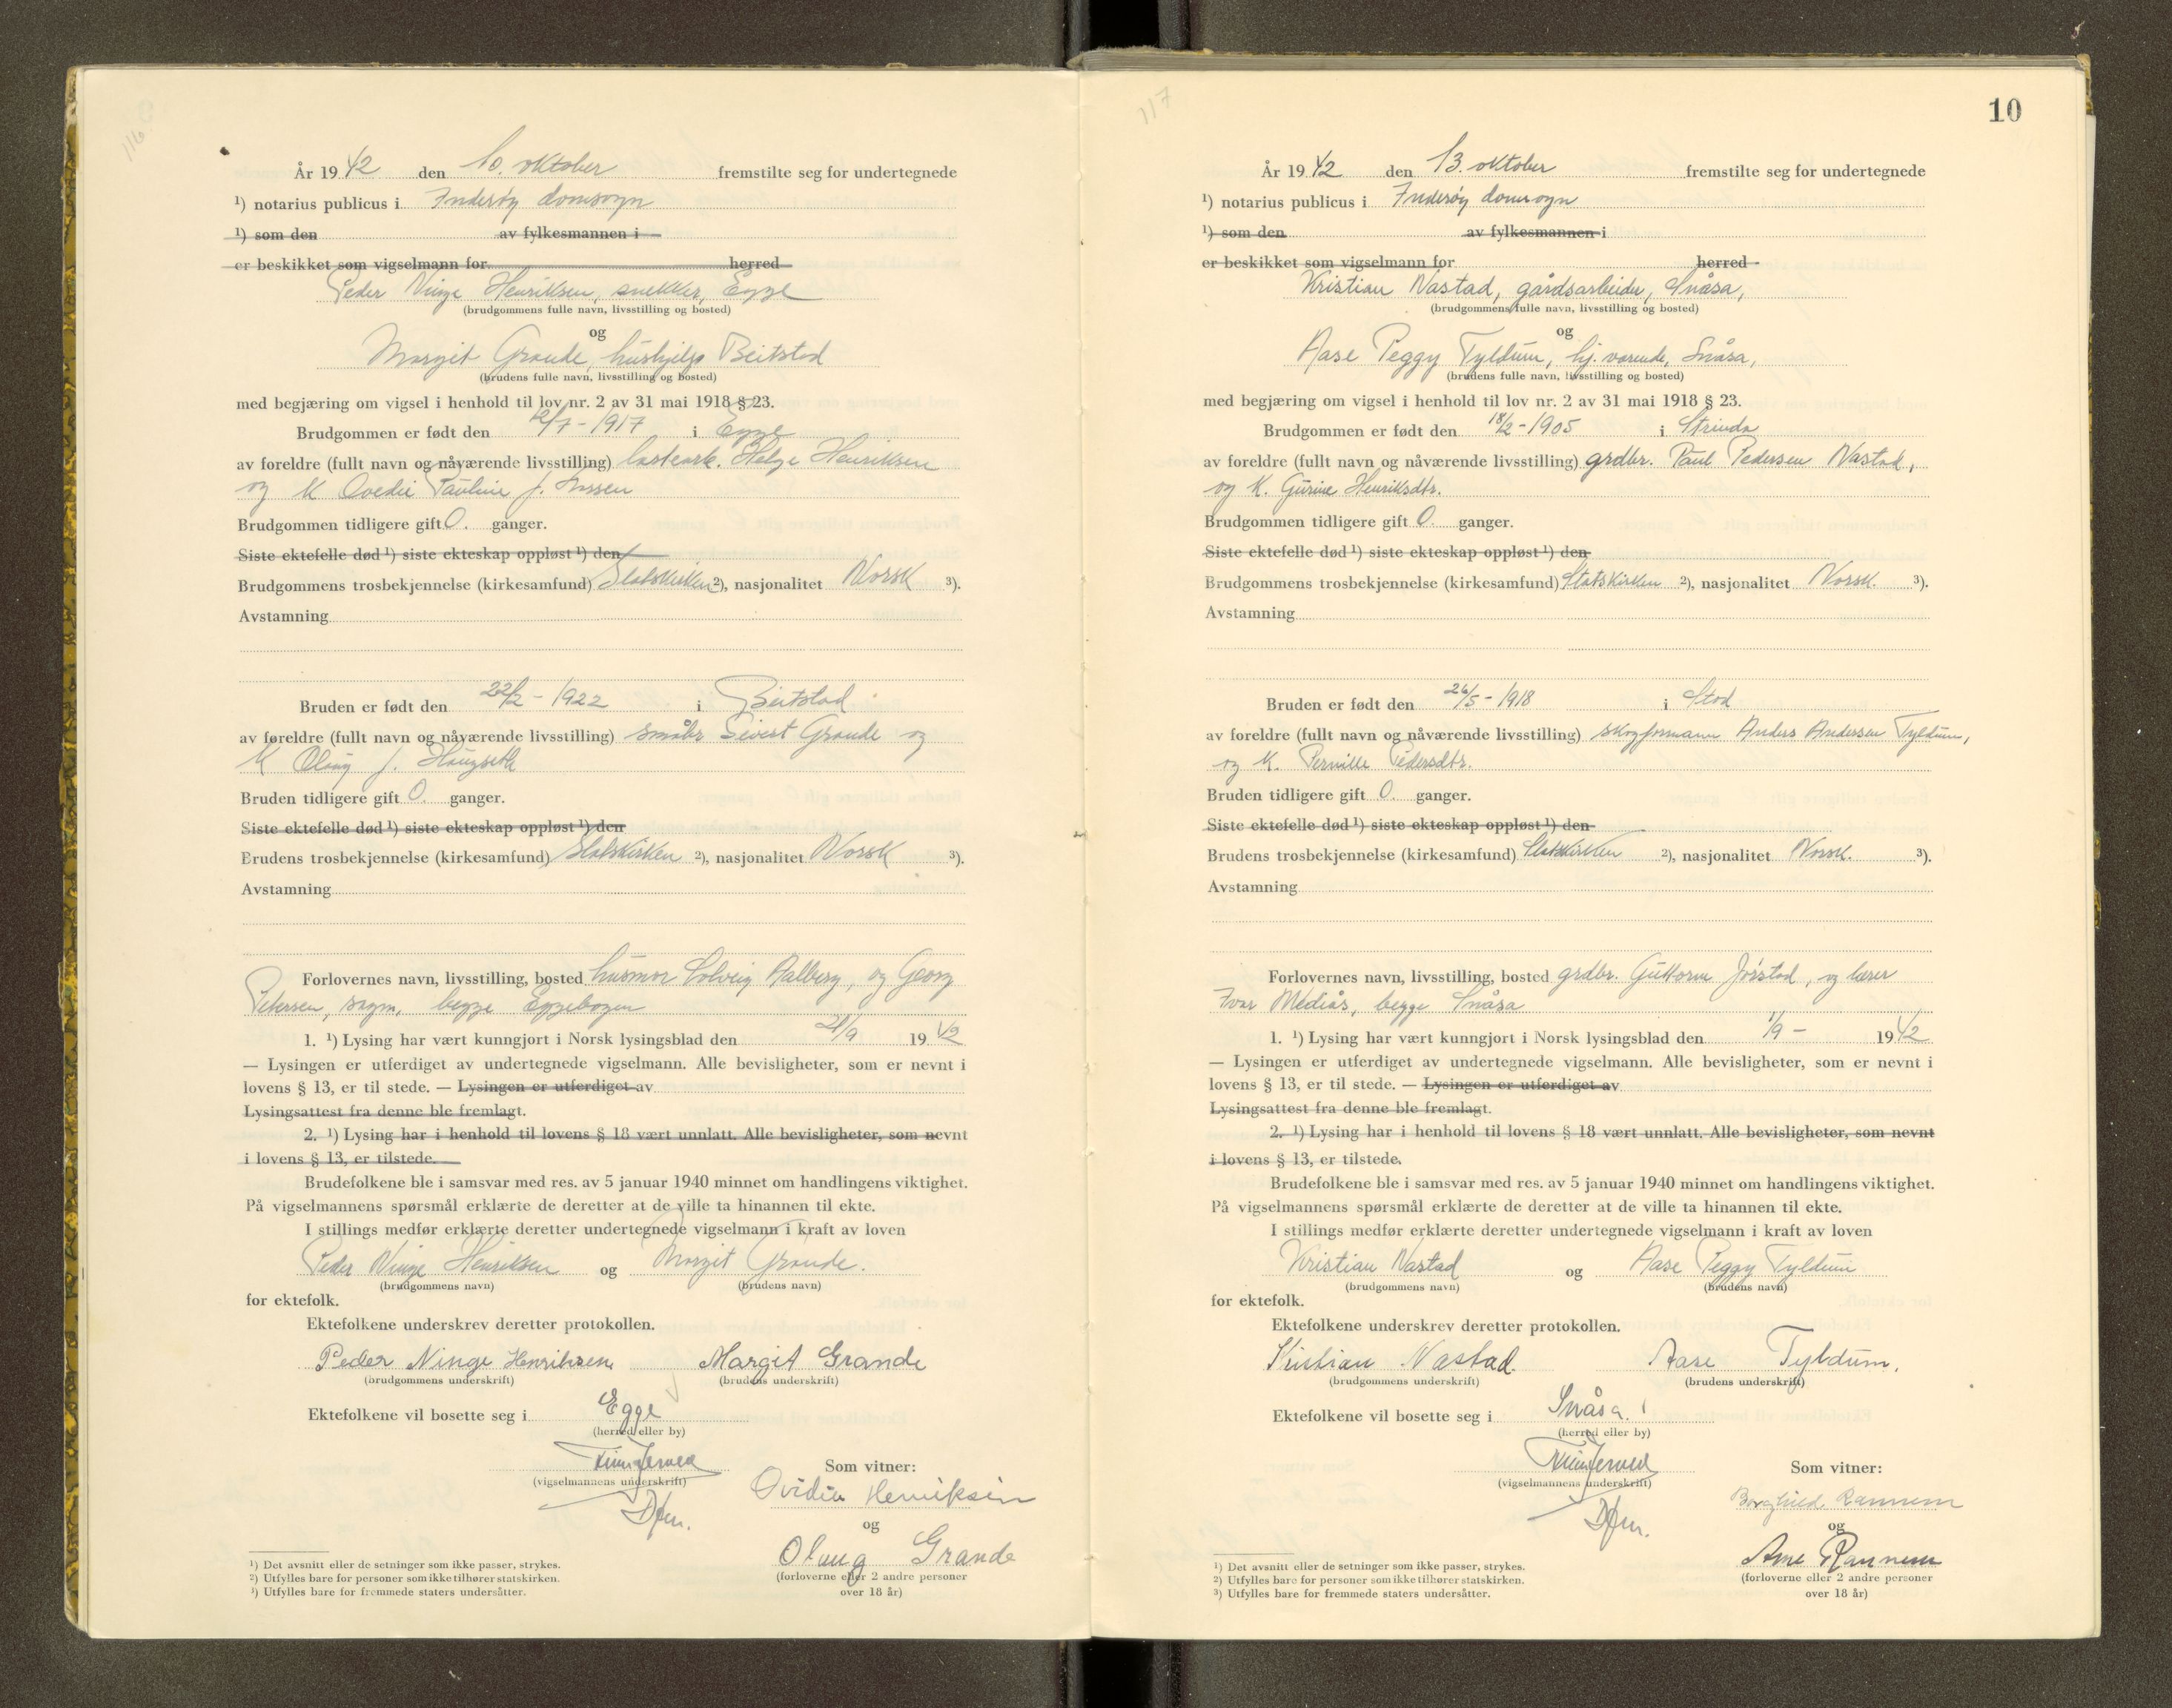 116
År 1942 den 10. oktober fremstilte seg for undertegnede
¹) notarius publicus i Inderøy domsogn
¹) som den av fylkesmannen i
er beskikket som vigselmann for herred
Peder Ninge Henriksen, snekker, Egge
(brudgommens fulle navn, livsstilling og bosted)
og
Margit Grande, hushjelp Beitstad
(brudens fulle navn, livsstilling og bosted)
med begjæring om vigsel i henhold til lov nr. 2 av 31 mai 1918 § 23.
Brudgommen er født den /7-1917 i Egge
av foreldre (fullt navn og nåværende livsstilling) Helge Henriksen
og K Pauline f.
Brudgommen tidligere gift 0. ganger.
Siste ektefelle død ¹) siste ekteskap oppløst ¹) den
Brudgommens trosbekjennelse (kirkesamfund) Statskirken ²), nasjonalitet Norsk ³).
Avstamning
Bruden er født den 22/2-1922 i Beitstad
av foreldre (fullt navn og nåværende livsstilling) småbr Sivert Grande og
K Olaug f. Haugseth
Bruden tidligere gift 0. ganger.
Siste ektefelle død ¹) siste ekteskap oppløst ¹) den
Brudens trosbekjennelse (kirkesamfund) Statskirken ²), nasjonalitet Norsk ³).
Avstamning
Forlovernes navn, livsstilling, bosted husmor Solveig Aalberg, og Georg
Petersen, begge Eggebogen
1. ¹) Lysing har vært kunngjort i Norsk lysingsblad den 21/9 1942
— Lysingen er utferdiget av undertegnede vigselmann. Alle bevisligheter, som er nevnt i
lovens § 13, er til stede. — Lysingen er utferdiget av
Lysingsattest fra denne ble fremlagt.
2. ¹) Lysing har i henhold til lovens § 18 vært unnlatt. Alle bevisligheter, som nevnt
i lovens § 13, er tilstede.
Brudefolkene ble i samsvar med res. av 5 januar 1940 minnet om handlingens viktighet.
På vigselmannens spørsmål erklærte de deretter at de ville ta hinannen til ekte.
I stillings medfør erklærte deretter undertegnede vigselmann i kraft av loven
Peder Ninge Henriksen og Margit Grande.
(brudgommens navn) (brudens navn)
for ektefolk.
Ektefolkene underskrev deretter protokollen.
Peder Ninge Henriksen Margit Grande
(brudgommens underskrift) (brudens underskrift)
Ektefolkene vil bosette seg i Egge
(herred eller by)
Som vitner:
(vigselmannens underskrift)
Ovidie Henriksen
Dfm.
og
Olaug Grande
(forloverne eller 2 andre personer
over 18 år)
¹) Det avsnitt eller de setninger som ikke passer, strykes.
²) Utfylles bare for personer som ikke tilhører statskirken.
³) Utfylles bare for fremmede staters undersåtter.
117
10
År 1942 den 13. oktober fremstilte seg for undertegnede
¹) notarius publicus i Inderøy domsogn
¹) som den av fylkesmannen i
er beskikket som vigselmann for herred
Kristian Nastad, gårdsarbeider, Snåsa,
(brudgommens fulle navn, livsstilling og bosted)
og
Aase Peggy Tyldum, hj. værende, Snåsa,
(brudens fulle navn, livsstilling og bosted)
med begjæring om vigsel i henhold til lov nr. 2 av 31 mai 1918 § 23.
Brudgommen er født den 18/2-1905 i Strinda
av foreldre (fullt navn og nåværende livsstilling) grdbr. Paul Pedersen Nastad,
og K. Gurine Henriksdtr.
Brudgommen tidligere gift 0. ganger.
Siste ektefelle død ¹) siste ekteskap oppløst ¹) den
Brudgommens trosbekjennelse (kirkesamfund) Statskirken ²), nasjonalitet Norsk. ³).
Avstamning
Bruden er født den 26/5-1918 i Stod
av foreldre (fullt navn og nåværende livsstilling) skogformann Anders Andersen Tyldum,
og K. Pernille Pedersdtr.
Bruden tidligere gift 0. ganger.
Siste ektefelle død ¹) siste ekteskap oppløst ¹) den
Brudens trosbekjennelse (kirkesamfund) Statskirken ²), nasjonalitet Norsk. ³).
Avstamning
Forlovernes navn, livsstilling, bosted grdbr. Guttorm Jørstad, og lærer
Ivar Mediås, begge Snåsa
1. ¹) Lysing har vært kunngjort i Norsk lysingsblad den 1/9 - 1942
— Lysingen er utferdiget av undertegnede vigselmann. Alle bevisligheter, som er nevnt i
lovens § 13, er til stede. — Lysingen er utferdiget av
Lysingsattest fra denne ble fremlagt.
2. ¹) Lysing har i henhold til lovens § 18 vært unnlatt. Alle bevisligheter, som nevnt
i lovens § 13, er tilstede.
Brudefolkene ble i samsvar med res. av 5 januar 1940 minnet om handlingens viktighet.
På vigselmannens spørsmål erklærte de deretter at de ville ta hinannen til ekte.
I stillings medfør erklærte deretter undertegnede vigselmann i kraft av loven
Kristian Nastad og Aase Peggy Tyldum
(brudgommens navn) (brudens navn)
for ektefolk.
Ektefolkene underskrev deretter protokollen.
Kristian Nastad. Aase Tyldum.
(brudgommens underskrift) (brudens underskrift)
Ektefolkene vil bosette seg i Snåsa.
(herred eller by)
Som vitner:
(vigselmannens underskrift)
Borghild Rannem
Dfm.
og
Arne Rannem
(forloverne eller 2 andre personer
over 18 år)
¹) Det avsnitt eller de setninger som ikke passer, strykes.
²) Utfylles bare for personer som ikke tilhører statskirken.
³) Utfylles bare for fremmede staters undersåtter.